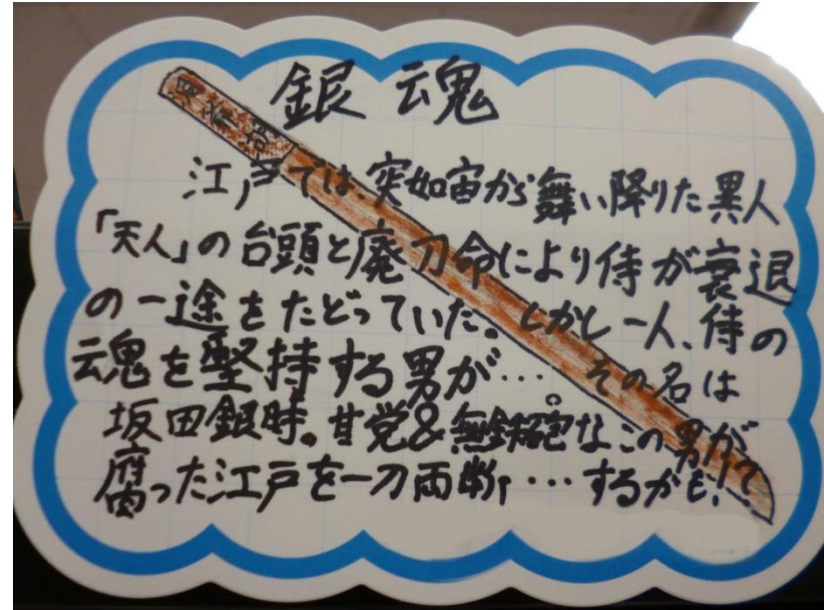 銀魂
洞爺湖
江戸では、突如宙から舞い降りた異人
「天人」の台頭と廃刀命により侍が衰退
の一途をたどっていた。しかし一人、侍の
魂を堅持する男が…。その名は
坂田銀時。甘党&無鉄砲なこの男が
腐った江戸を一刀両断…するかも!?